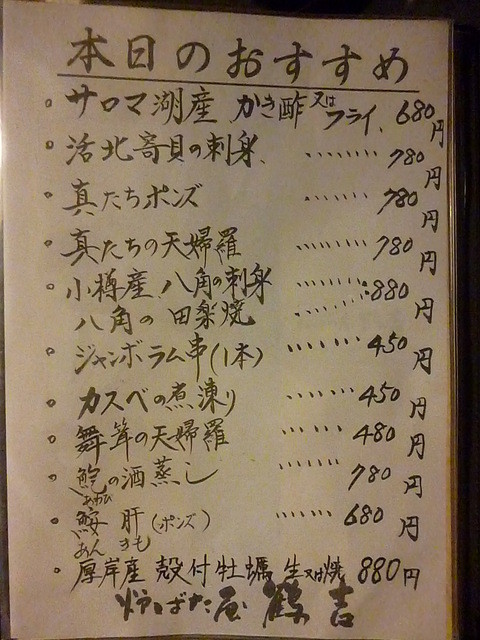 本日のおすすめ
・サロマ湖産 かき酢 又は フライ、680円
・活北寄貝の刺身、………780円
・真たちポンズ ………780円
・真たちの天婦羅 ………780円
・小樽産 八角の刺身 ………880円
八角の 田楽焼 ………
・ジャンボラム串(1本) ………450円
・カスベの煮凍り ………450円
・舞茸の天婦羅 ………480円
・鮑の酒蒸し ………780円
あわび
・鮟肝(ポンズ) ………680円
あんきも
・厚岸産 殻付牡蠣 生又は焼 880円
炉ばた屋 鶴吉